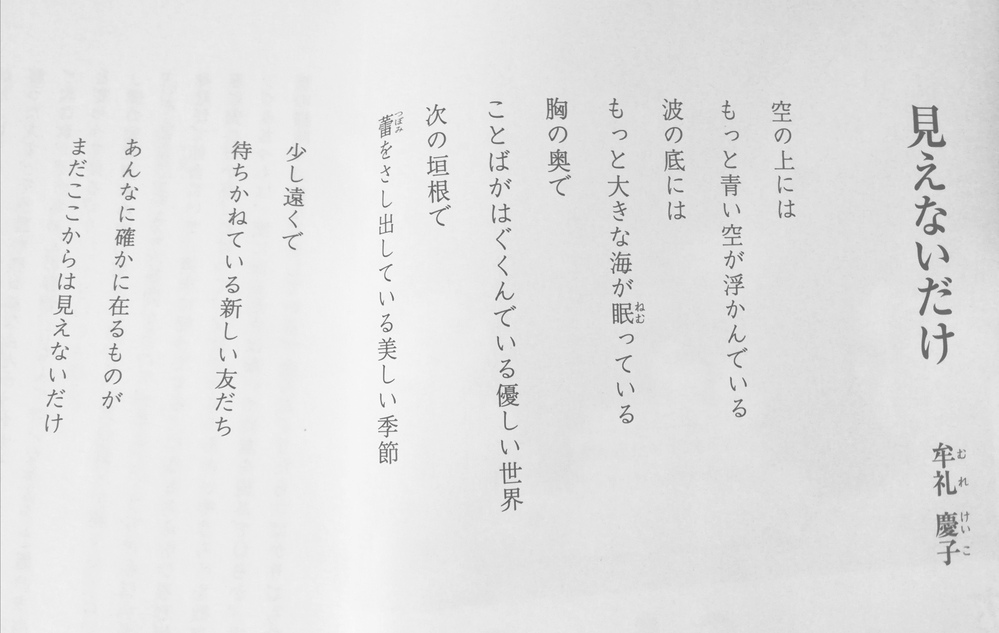 見えないだけ
牟礼 慶子
むれ けいこ
空の上には
もっと青い空が浮かんでいる
波の底には
もっと大きな海が眠っている
ねむ
胸の奥で
ことばがはぐくんでいる優しい世界
次の垣根で
蕾をさし出している美しい季節
つぼみ
少し遠くで
待ちかねている新しい友だち
あんなに確かに在るものが
まだここからは見えないだけ